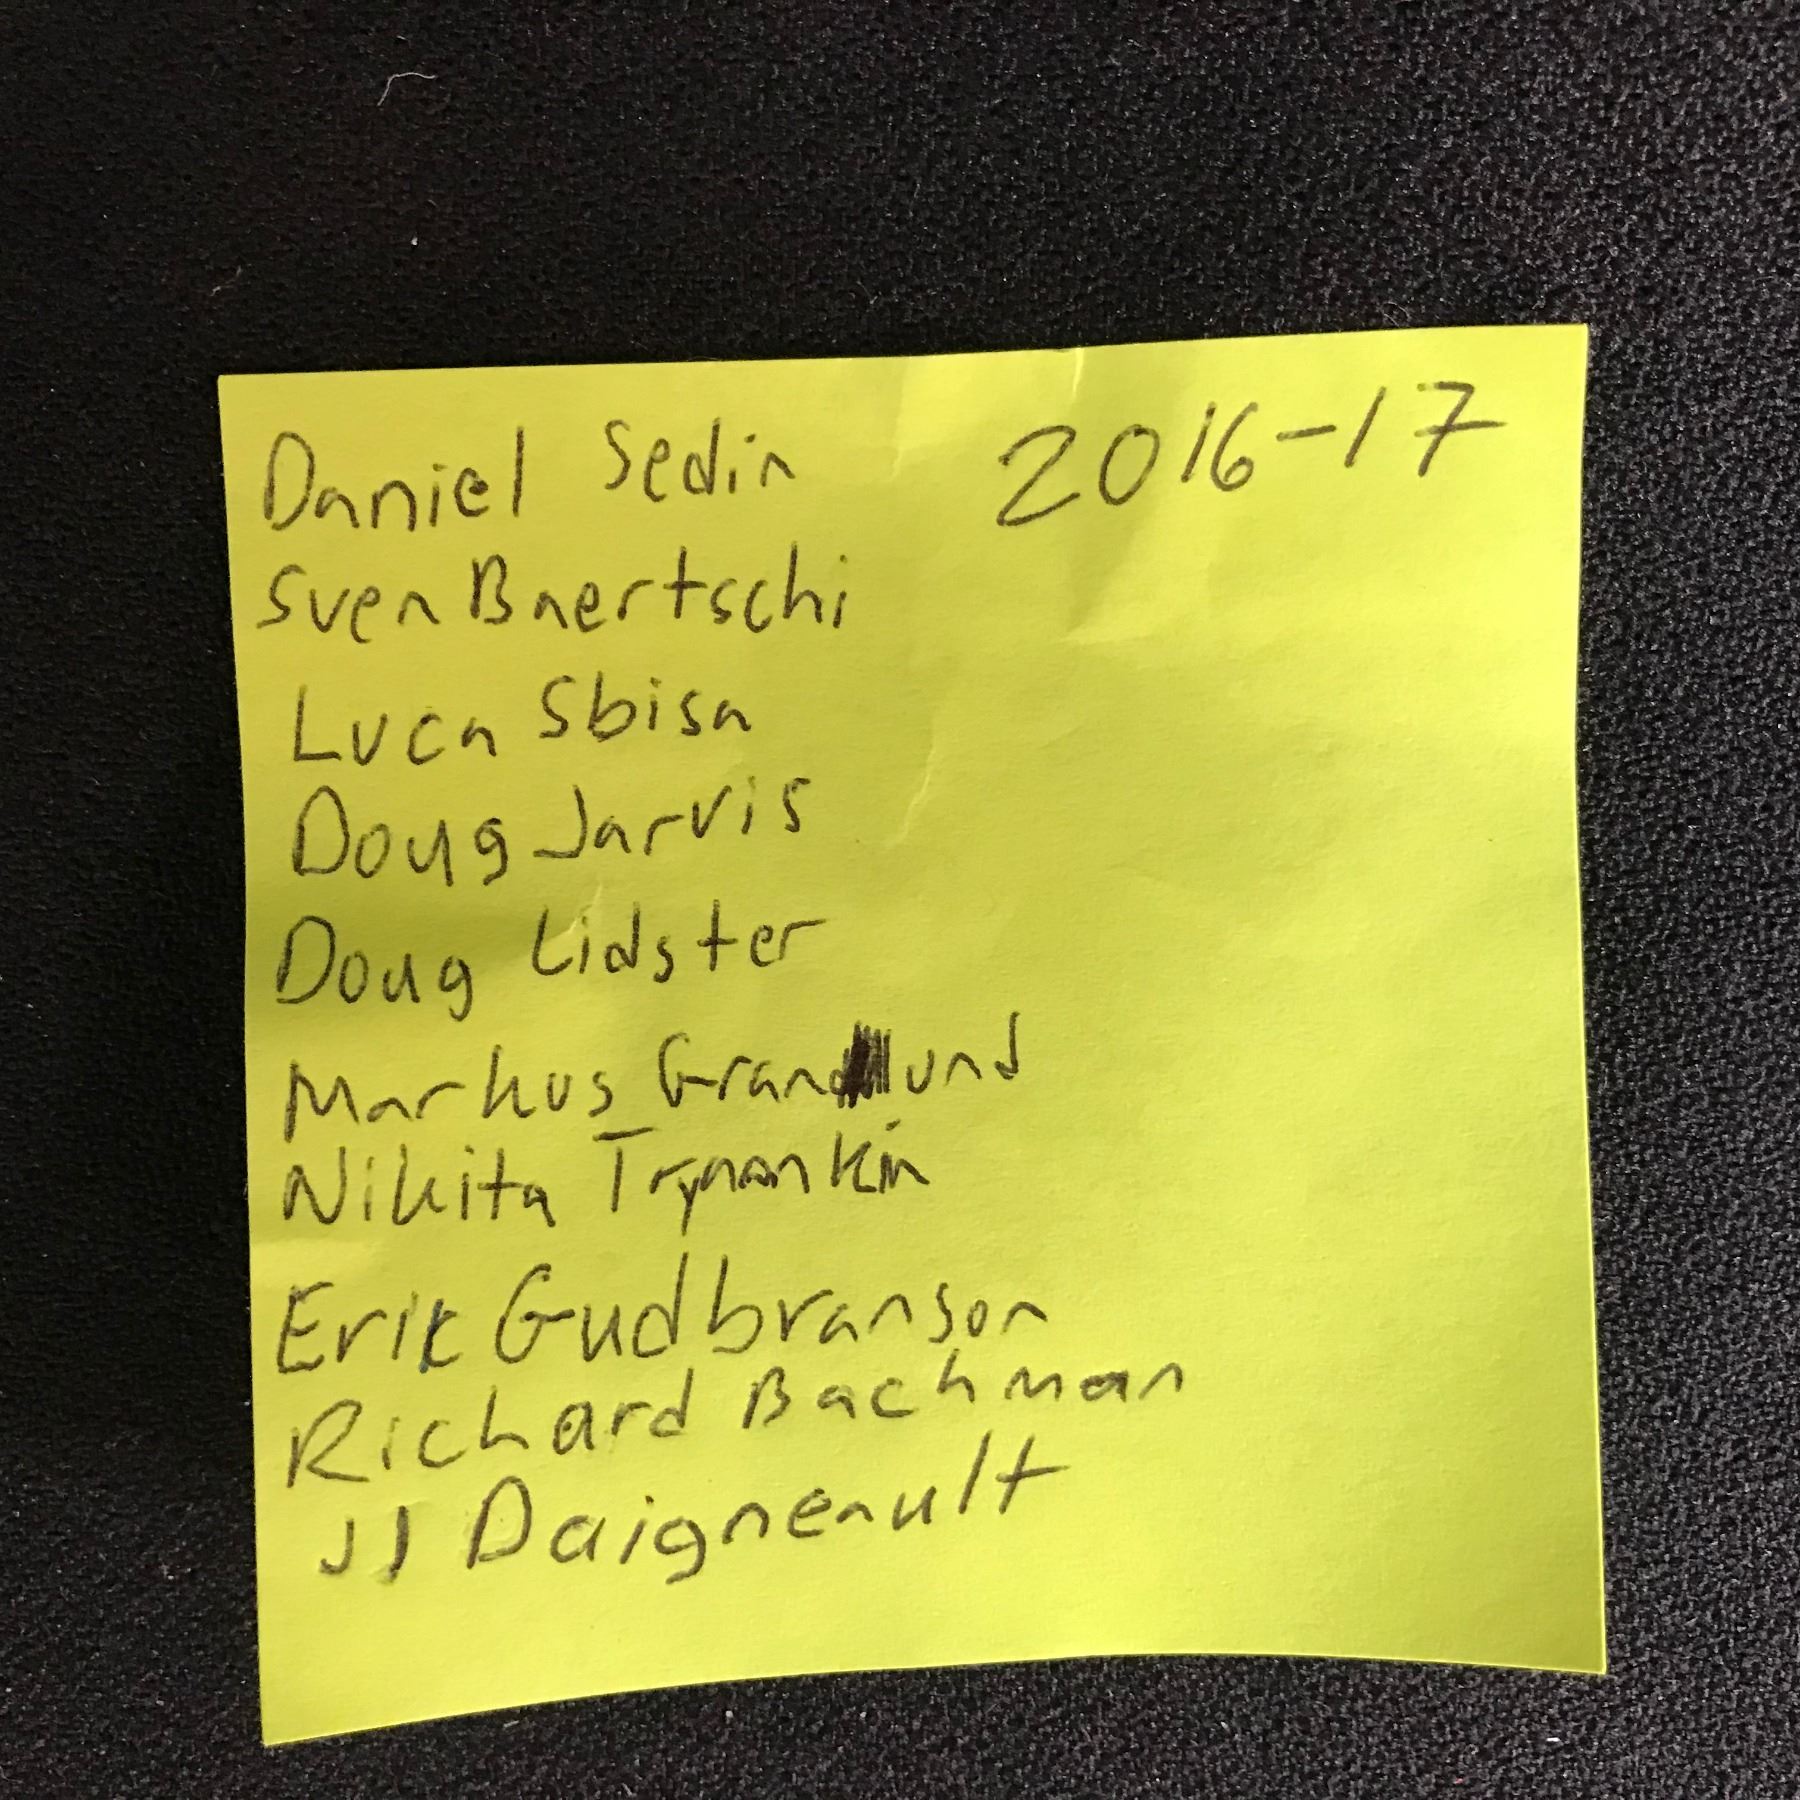 Daniel Sedin 2016-17
Sven Baertschi
Luca Sbisa
Doug Jarvis
Doug Lidster
Markus Granlund
Nikita Tryamkin
Erik Gudbranson
Richard Bachman
JJ Daigneault